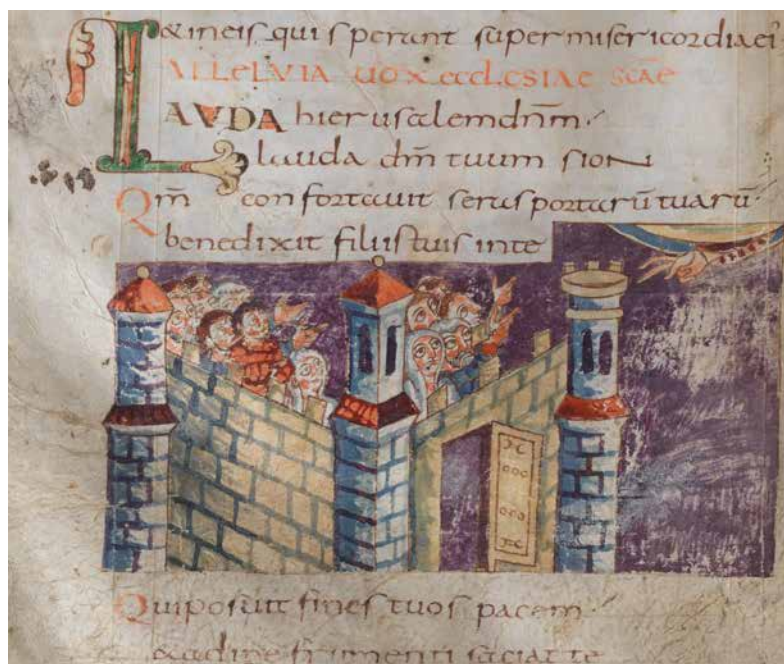 & in eis qui sperant super misericordia ei·
ALLELVIA uox ecclesiae scae
LAVDA hierusalem dn̄m·
lauda dm̄ tuum sion
Qm̄ confortauit seras portarū tuarū·
benedixit filiis tuis in te
Qui posuit fines tuos pacem·
& adipe frumenti saciat te